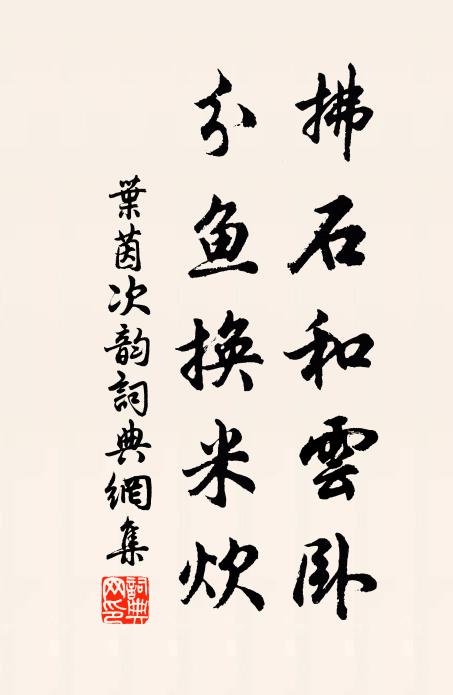 拂石和雲卧
分魚換米炊
葉茵次韵詞典網集
詞典网印